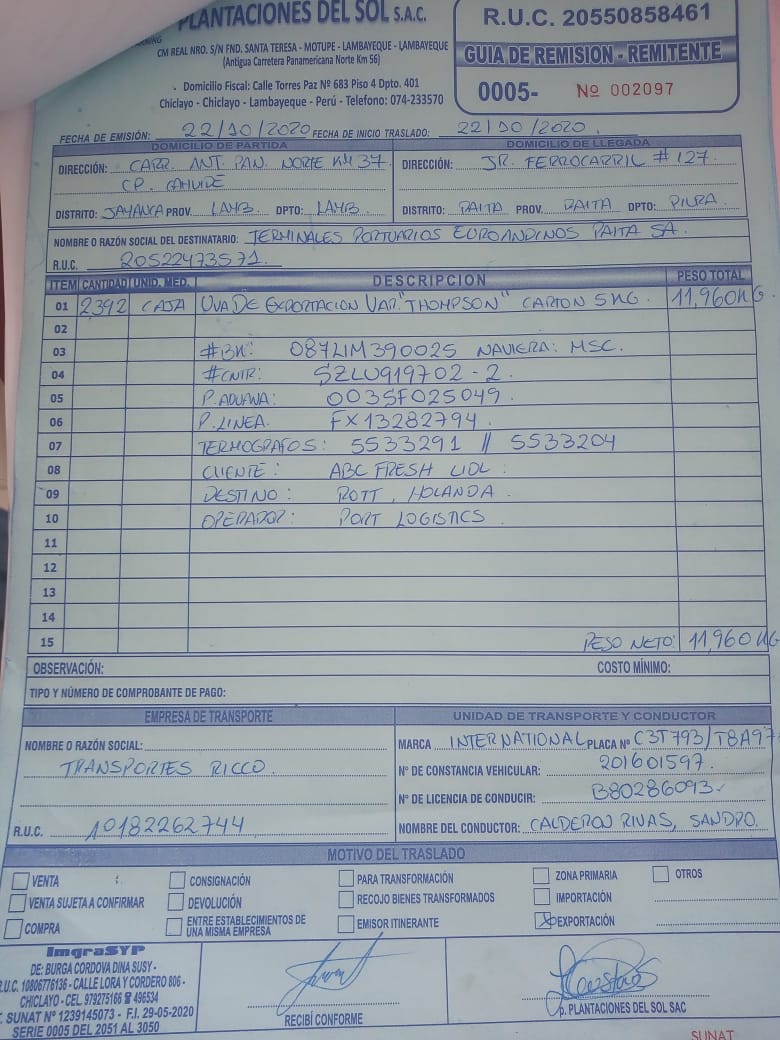 PLANTACIONES DEL SOL S.A.C.
CM REAL NRO. S/N FND. SANTA TERESA - MOTUPE - LAMBAYEQUE - LAMBAYEQUE
(Antigua Carretera Panamerica Norte Km 56)
Domicilio Fiscal: Calle Torres Paz Nº 683 Piso 4 Dpto. 401
Chiclayo - Chiclayo - Lambayeque - Perú - Telefono: 074-233570
R.U.C. 20550858461
GUIA DE REMISION - REMITENTE
0005- Nº 002097
FECHA DE EMISIÓN: 22/10/2020 FECHA DE INICIO TRASLADO: 22/10/2020.
DOMICILIO DE PARTIDA
DIRECCIÓN: CARR. ANT. PAN. NORTE KM 37
CP. CAHUIDE
DISTRITO: JAYANCA PROV. LAMB. DPTO: LAMB.
DOMICILIO DE LLEGADA
DIRECCIÓN: JR. FERROCARRIL # 127.
DISTRITO: PAITA PROV. PAITA DPTO: PIURA
NOMBRE O RAZÓN SOCIAL DEL DESTINATARIO: TERMINALES PORTUARIOS EUROANDINOS PAITA SA.
R.U.C. 20522473571.
ITEM CANTIDAD UNID. MED. DESCRIPCION PESO TOTAL
01 2392 CAJA UVA DE EXPORTACION VAR. "THOMPSON" CARTON 5 KG. 11,960KG.
02
03 #BK: 087LIM390025 NAVIERA: MSC.
04 #CNTR: SZLU919702-2.
05 P. ADUANA: 003SF025049.
06 P. LINEA. FX13282794.
07 TERMOGRAFOS: 5533291 // 5533204
08 CLIENTE: ABC FRESH
09 DESTINO: ROTT, HOLANDA.
10 OPERADOR: PORT LOGISTICS
11
12
13
14
15 PESO NETO: 11,960 KG
OBSERVACIÓN: COSTO MÍNIMO:
TIPO Y NÚMERO DE COMPROBANTE DE PAGO:
EMPRESA DE TRANSPORTE
NOMBRE O RAZÓN SOCIAL:
TRANSPORTES RICCO.
R.U.C. 10182262744
UNIDAD DE TRANSPORTE Y CONDUCTOR
MARCA INTERNATIONAL PLACA Nº C3T793/T8A97
Nº DE CONSTANCIA VEHICULAR: 201601597.
Nº DE LICENCIA DE CONDUCIR: B80286093
NOMBRE DEL CONDUCTOR: CALDERON RIVAS, SANDRO.
MOTIVO DEL TRASLADO
VENTA CONSIGNACIÓN PARA TRANSFORMACIÓN ZONA PRIMARIA OTROS
VENTA SUJETA A CONFIRMAR DEVOLUCIÓN RECOJO BIENES TRANSFORMADOS IMPORTACIÓN
COMPRA ENTRE ESTABLECIMIENTOS DE EMISOR ITINERANTE EXPORTACIÓN
UNA MISMA EMPRESA
ImgraSYP
DE: BURGA CORDOVA DINA SUSY -
R.U.C. 10806776136 - CALLE LORA Y CORDERO 806 -
CHICLAYO - CEL. 979275166 ☎ 496534
SUNAT Nº 1239145073 - F.I. 29-05-2020
SERIE 0005 DEL 2051 AL 3050
RECIBÍ CONFORME
p. PLANTACIONES DEL SOL SAC
SUNAT